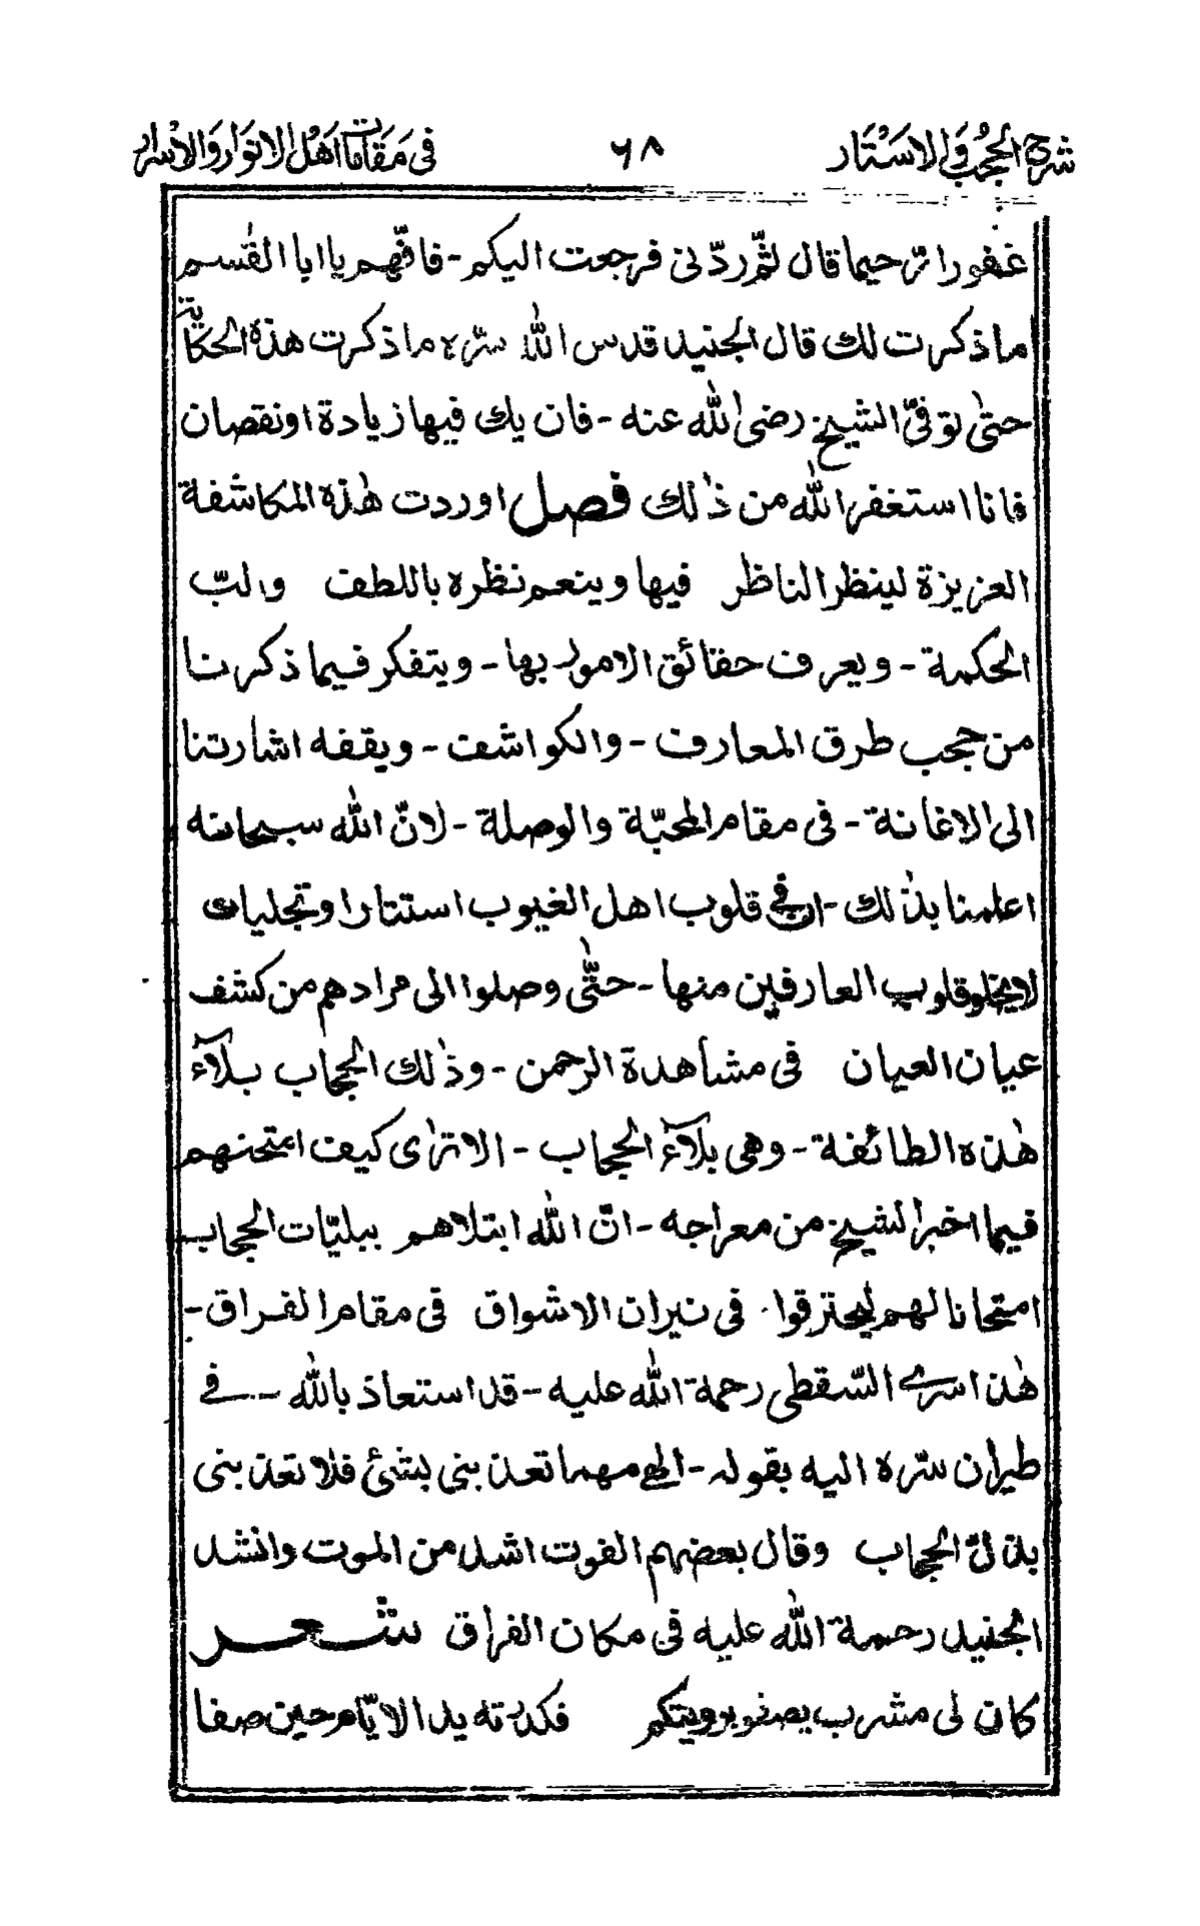 شرح الحجب والاستار ٦٨ فى مقامات اهل الانوار والاسرار
غفورا رّحيما قال ثمّ ردّنى فرجعت اليكم - فافّهم يا ابا القٰسم
ما ذكرت لك قال الجنيد قدس الله سرّه ما ذكرت هذه الحكاية
حتىٰ توفّى الشيخ رضى الله عنه - فان يك فيها زيادة او نقصان
فانا استغفر الله من ذٰلك فصل اوردت هٰذه المكاشفة
العزيزة لينظر الناظر فيها وينعم نظره باللطف والبّ
الحكمة - ويعرف حقائق الامور بها - ويتفكر فيما ذكرنا
من حجب طرق المعارف - والكواشف - ويفقه اشارتنا
الى الاغانة - فى مقام المحبّة والوصلة - لانّ الله سبحانه
اعلمنا بذٰلك - ان فى قلوب اهل الغيوب استتارا وتجليات
لا يخلو قلوب العارفين منها - حتّٰى وصلوا الى مرادهم من كشف
عيان العيان فى مشاهدة الرحمن - وذٰلك الحجاب بلآء
هٰذه الطائفة - وهى بلآء الحجاب - الا ترٰى كيف امتحنهم
فيما اخبر الشيخ من معراجه - انّ الله ابتلاهم ببليّات الحجاب
امتحانا لهم ليحترقوا فى نيران الاشواق فى مقام الفراق -
هٰذا سرى السّقطى رحمة الله عليه - قد استعاذ بالله - فى
طيران سرّه اليه بقوله - الٰهى مهما تعذبنى بشئ فلا تعذبنى
بذلّ الحجاب وقال بعضهم الفوت اشد من الموت وانشد
الجنيد رحمة الله عليه فى مكان الفراق شعر
كان لى مشرب يصفو برويتكم فكدرته يد الايّام حين صفا